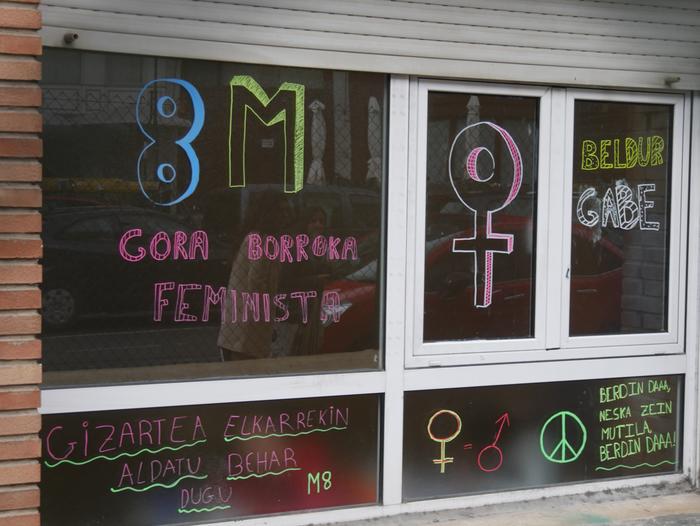 8 M
GORA BORROKA
FEMINISTA
BELDUR
GABE
GIZARTEA ELKARREKIN
ALDATU BEHAR
DUGU
M8
=
BERDIN DAAA,
NESKA ZEIN
MUTILA,
BERDIN DAAA!